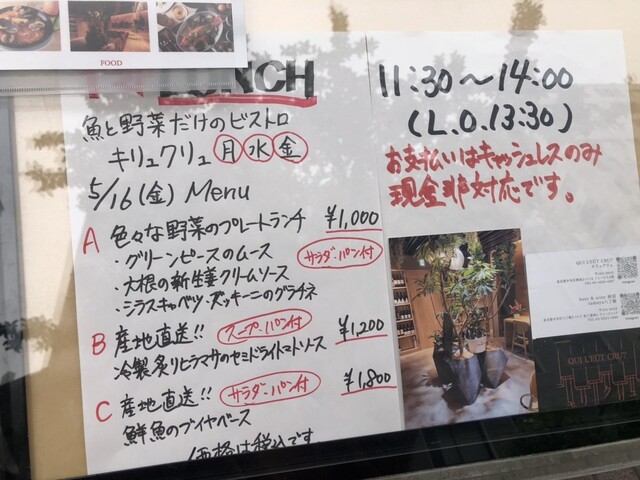 FOOD
LUNCH
魚と野菜だけのビストロ
キリュクリュ 月 水 金
5/16(金) Menu
A 色々な野菜のプレートランチ ¥1,000
・グリーンピースのムース サラダ・パン付
・大根の新生姜クリームソース
・シラスキャベツ・ズッキーニのグラチネ
B 産地直送!! スープ・パン付 ¥1,200
冷製炙りヒラマサのセミドライトマトソース
C 産地直送!! サラダ・パン付 ¥1,800
鮮魚のブイヤベース
価格は税込です
11:30〜14:00
(L.O.13:30)
お支払いはキャッシュレスのみ
現金非対応です。
QUI L'EÛT CRU?
QUI L'EÛT CRU?